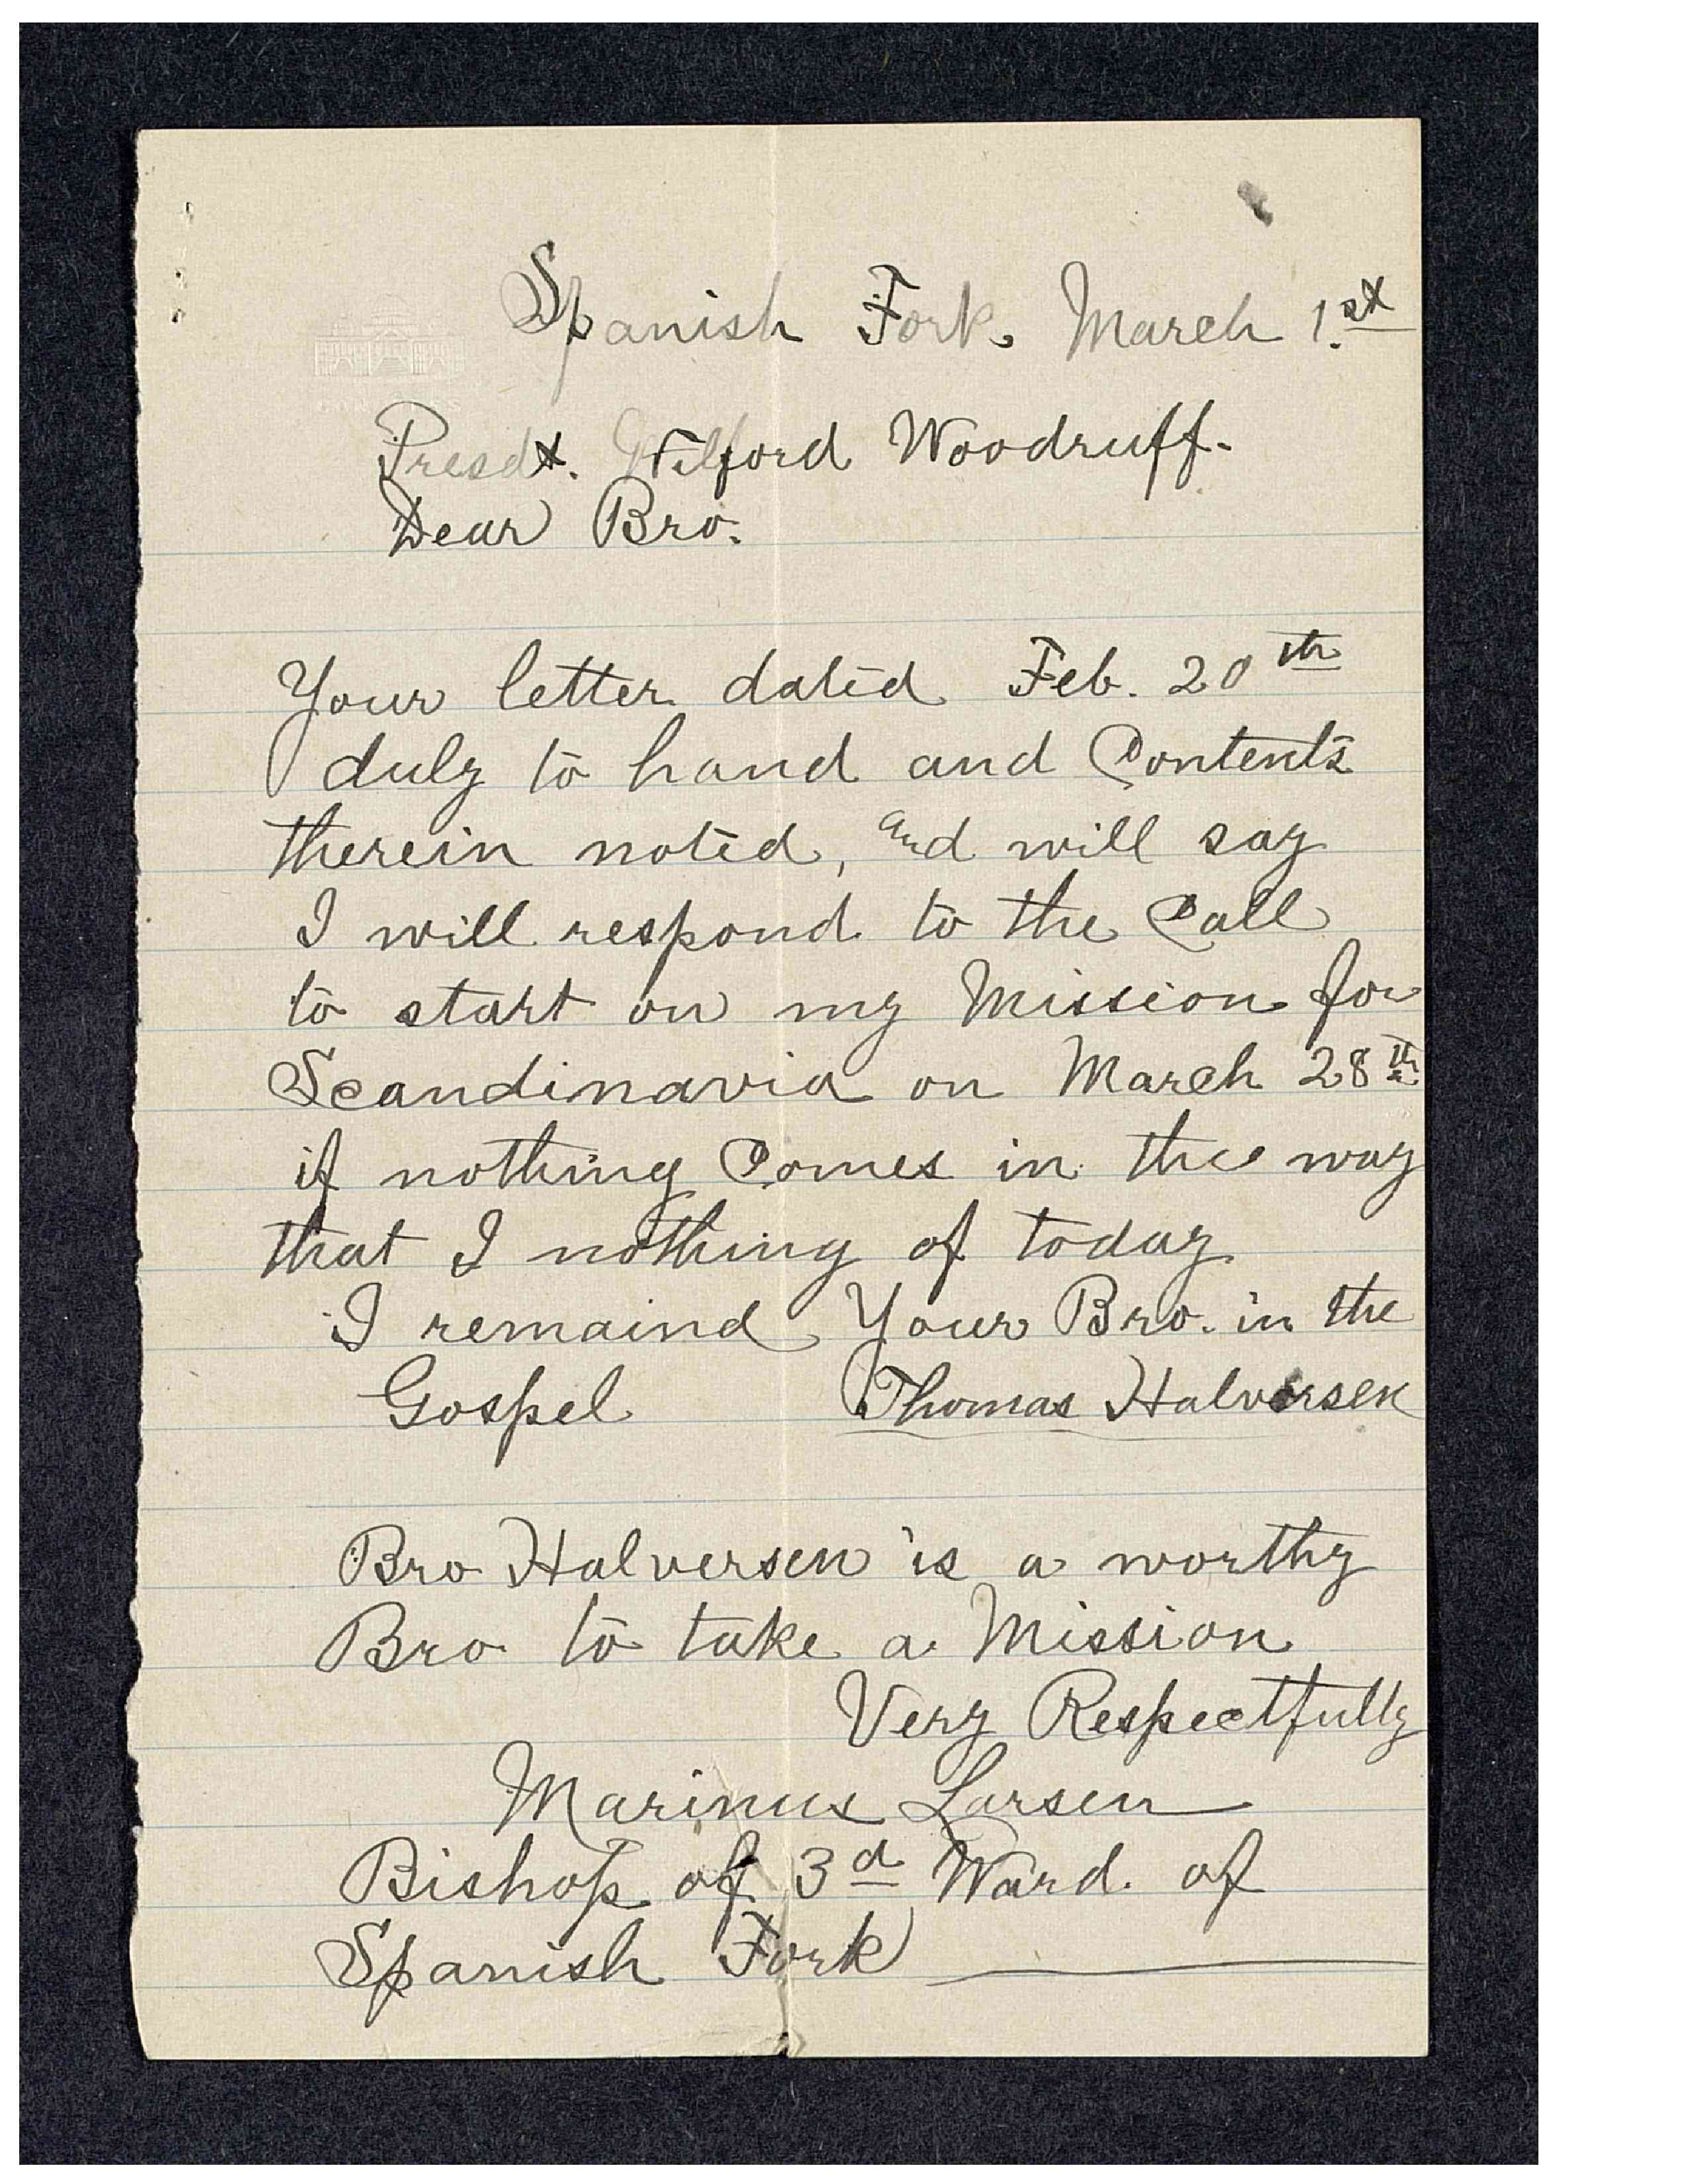 Spanish Fork. March 1.st
Presdt. Wilford Woodruff.
Dear Bro.
Your letter dated Feb. 20th
duly to hand and Contents
therein noted, and will say
I will respond to the Call
to start on my Mission for
Scandinavia on March 28th
if nothing Comes in the way
that I nothing of today
I remaind Your Bro. in the
Gospel Thomas Halversen
Bro Halversen is a worthy
Bro to take a Mission
Very Respectfully
Marinus Larsen
Bishop of 3d Ward. of
Spanish Fork